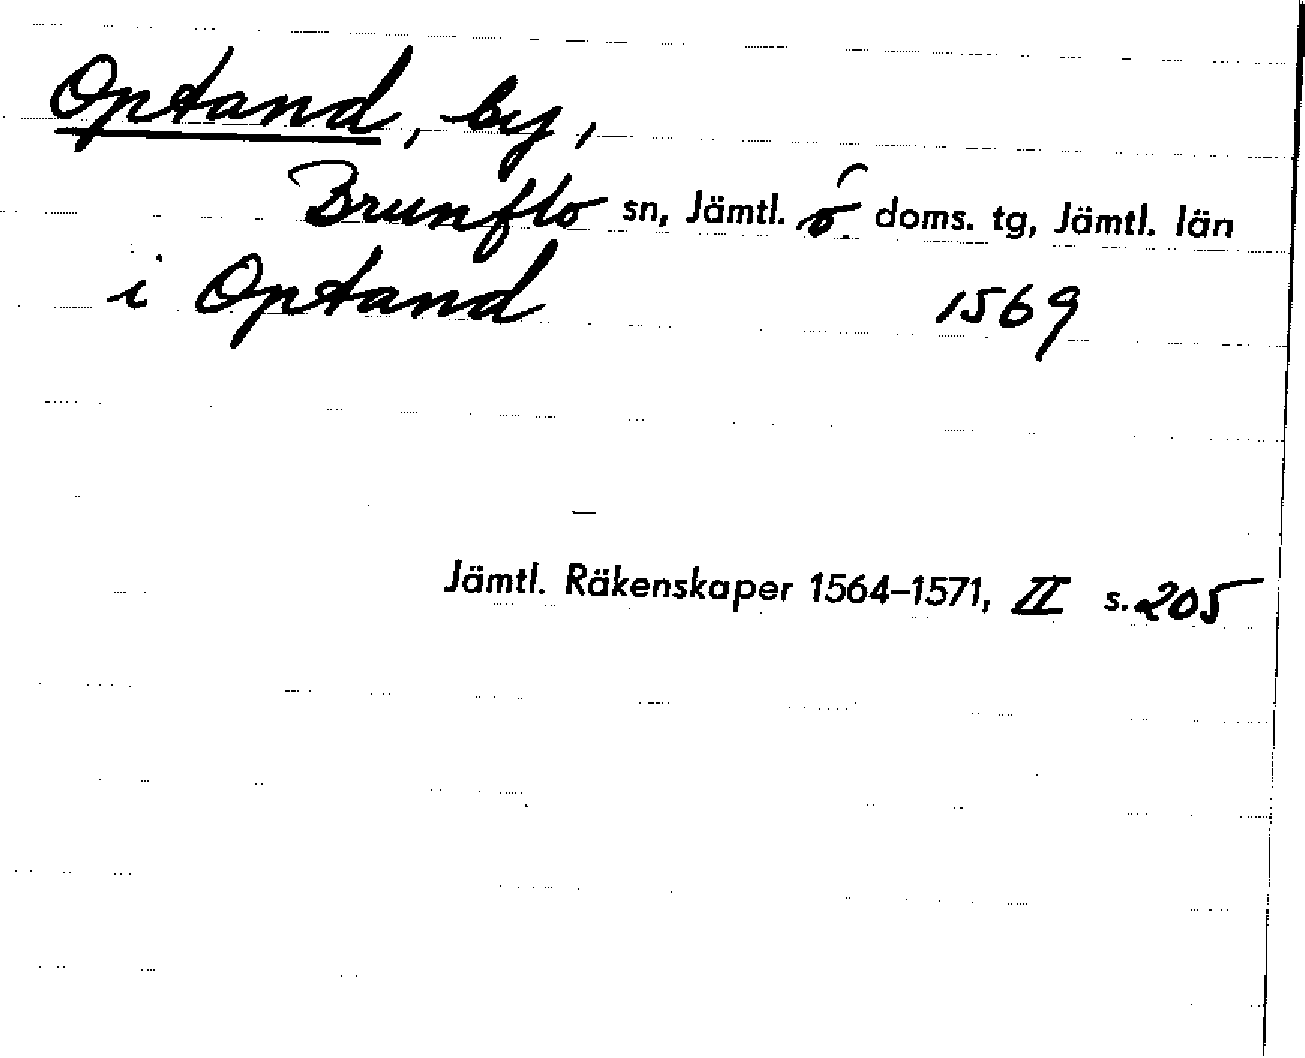 Optand, by,
Brunflo sn, Jämtl. ö doms. tg, Jämtl. län
i Optand 1569
Jämtl. Räkenskaper 1564–1571, II s. 205